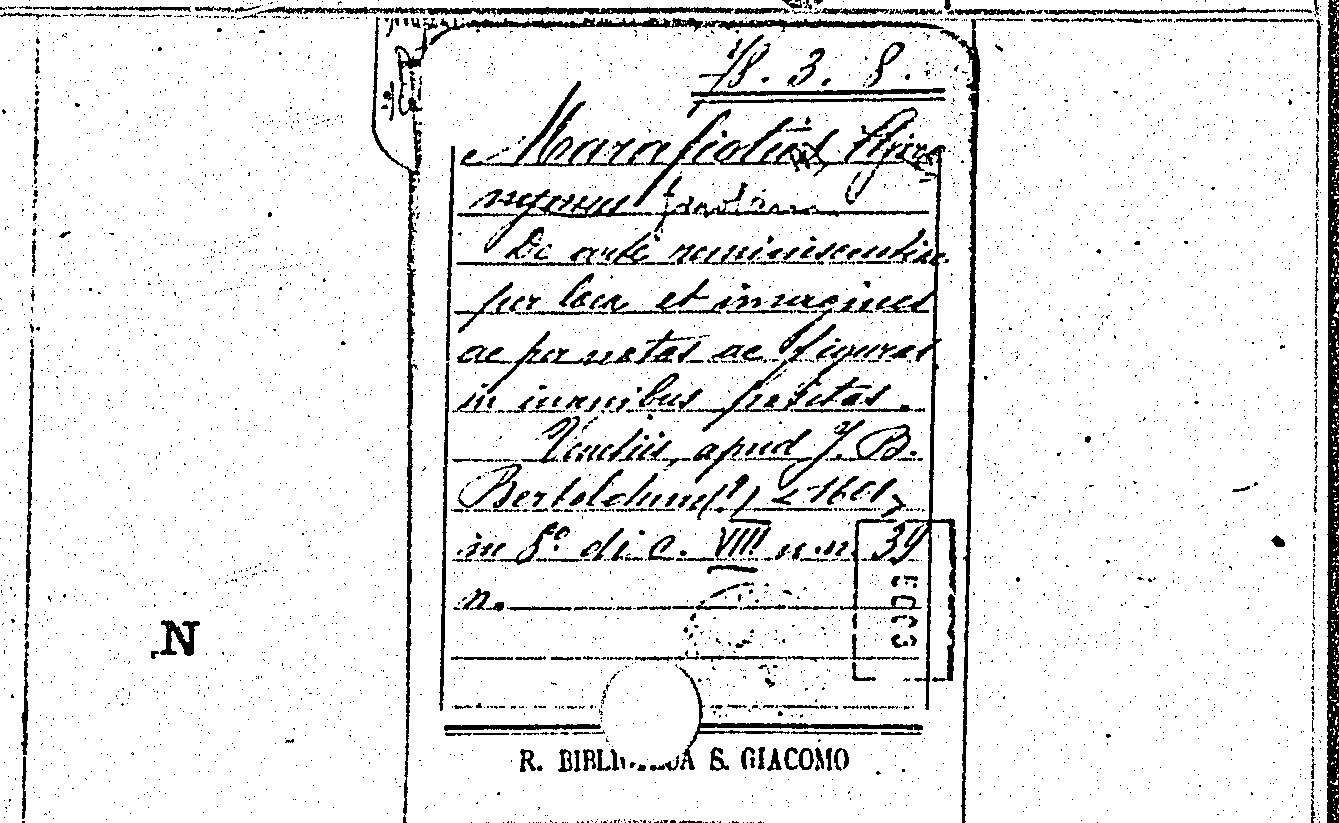 78. 3. 8.
Marafiotus Hiero
nymus
De arte reminiscentiae
per loca et imagines
ac per notas ac figuras
in manibus positas.
Venetiis, apud J. B.
Bertoldum(?) <1601>
in 8° di c. VIII n.n. 39
n.
N
R. BIBLI S. GIACOMO